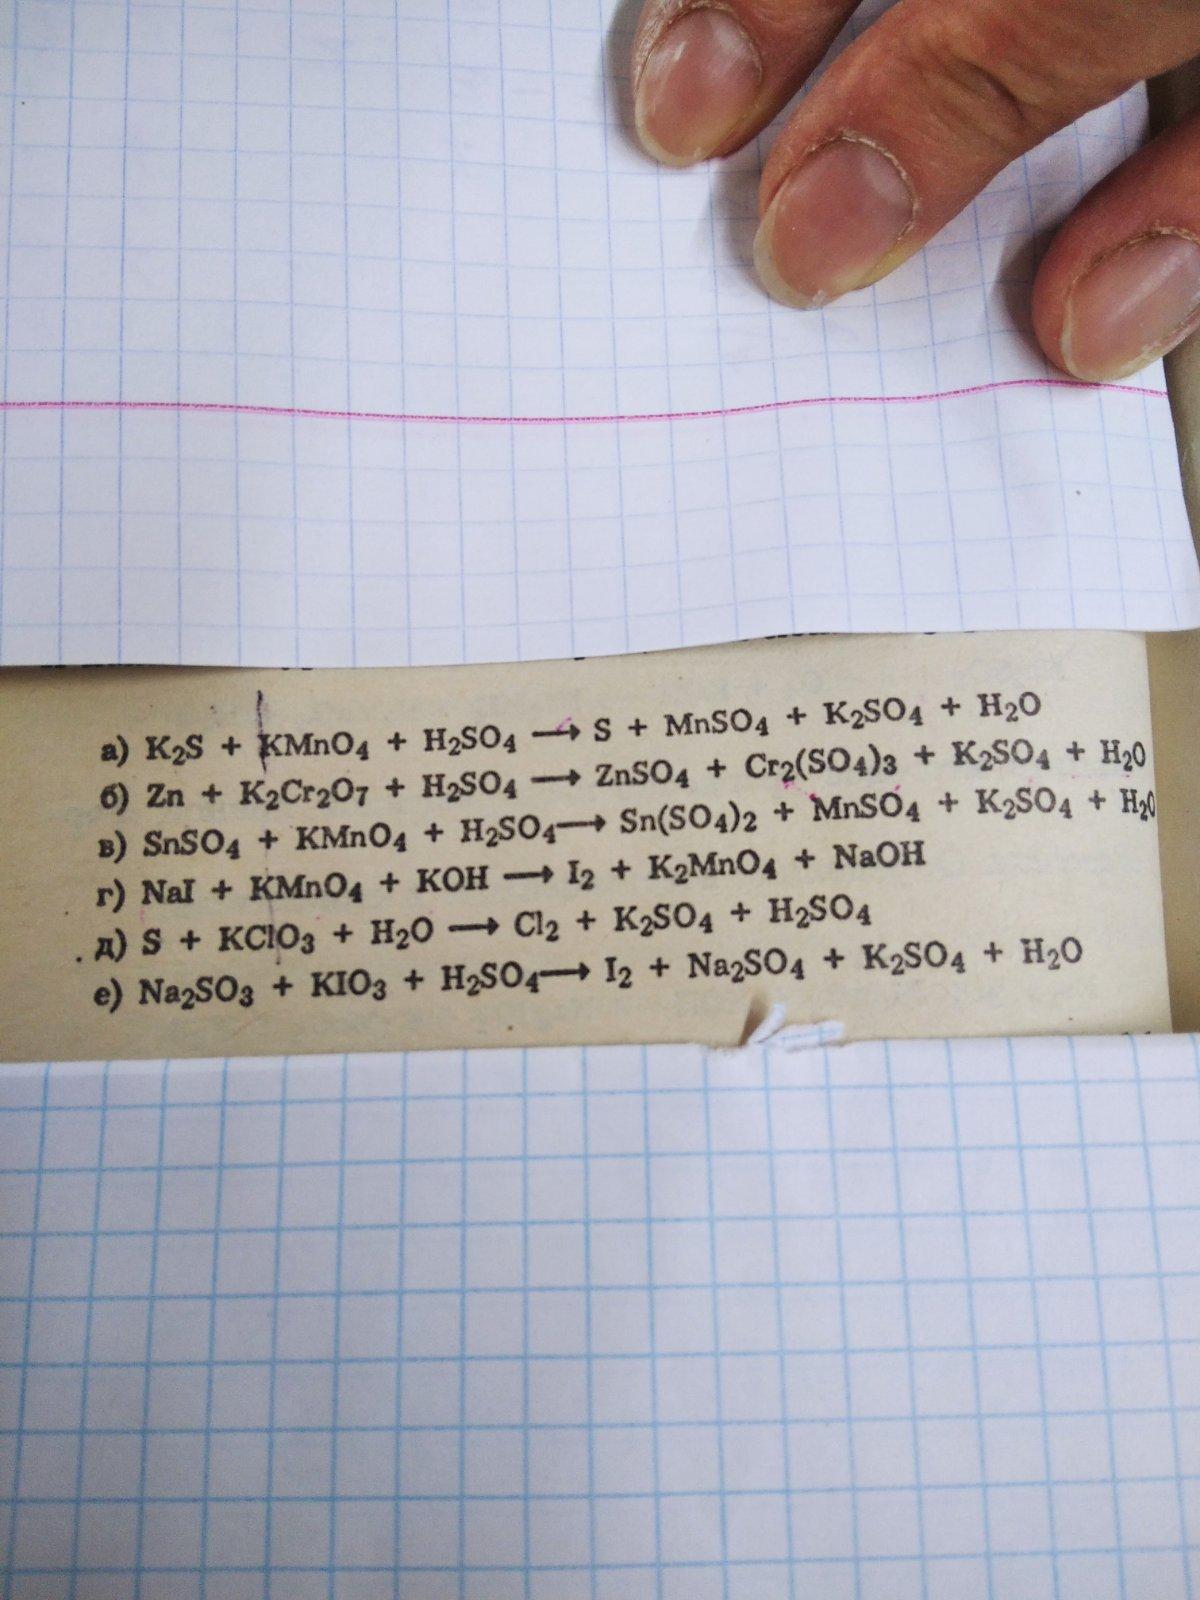 а) K₂S + KMnO₄ + H₂SO₄ → S + MnSO₄ + K₂SO₄ + H₂O
б) Zn + K₂Cr₂O₇ + H₂SO₄ → ZnSO₄ + Cr₂(SO₄)₃ + K₂SO₄ + H₂O
в) SnSO₄ + KMnO₄ + H₂SO₄ → Sn(SO₄)₂ + MnSO₄ + K₂SO₄ + H₂O
г) NaI + KMnO₄ + KOH → I₂ + K₂MnO₄ + NaOH
д) S + KClO₃ + H₂O → Cl₂ + K₂SO₄ + H₂SO₄
е) Na₂SO₃ + KIO₃ + H₂SO₄ → I₂ + Na₂SO₄ + K₂SO₄ + H₂O